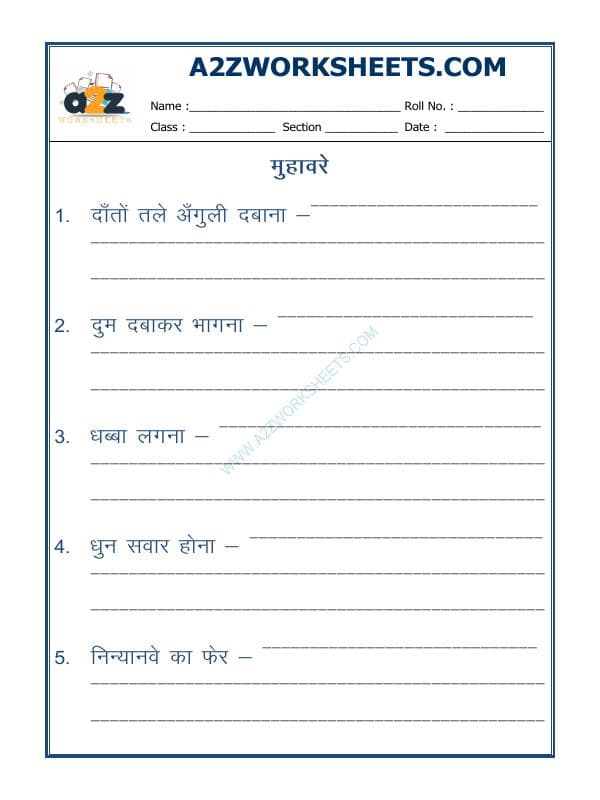 A2ZWORKSHEETS.COM
a2z
WORKSHEETS
Name :________________________________ Roll No. : _____________
Class : _____________ Section ___________ Date : _______________
मुहावरे
1. दाँतों तले अँगुली दबाना –________________________
________________________________________________
________________________________________________
2. दुम दबाकर भागना – ___________________________
________________________________________________
________________________________________________
3. धब्बा लगना – __________________________________
________________________________________________
________________________________________________
4. धुन सवार होना – _______________________________
________________________________________________
________________________________________________
5. निन्यानवे का फेर – _____________________________
________________________________________________
________________________________________________
WWW.A2ZWORKSHEETS.COM